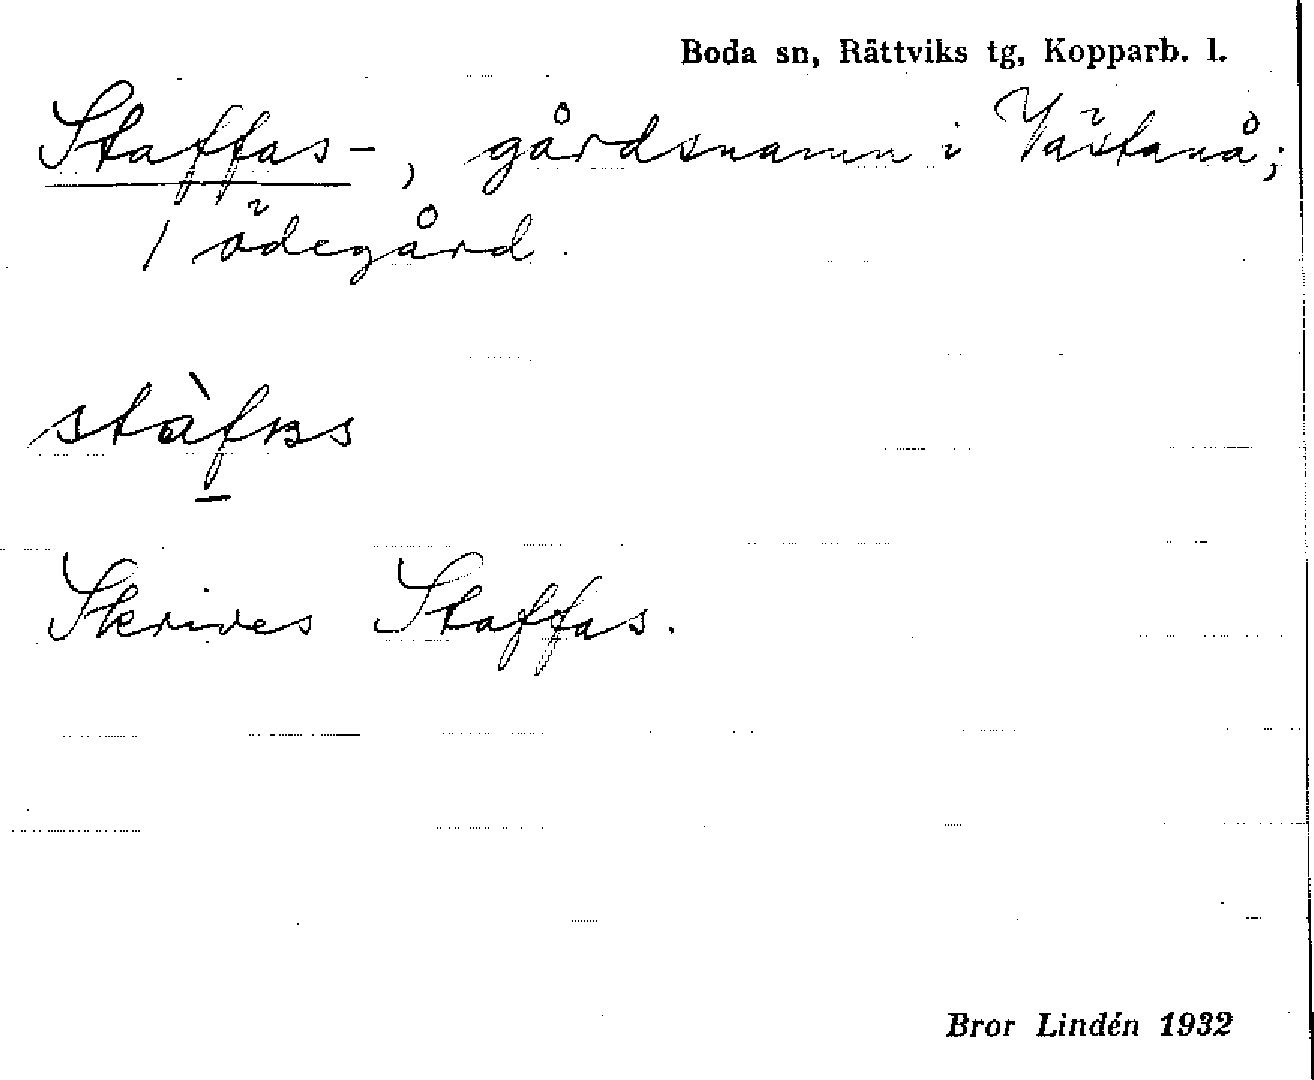 Boda sn, Rättviks tg, Kopparb. l.
Staffas-, gårdsnamn i Västanå;
1 ödegård.
Skrives Staffas.
Bror Lindén 1932